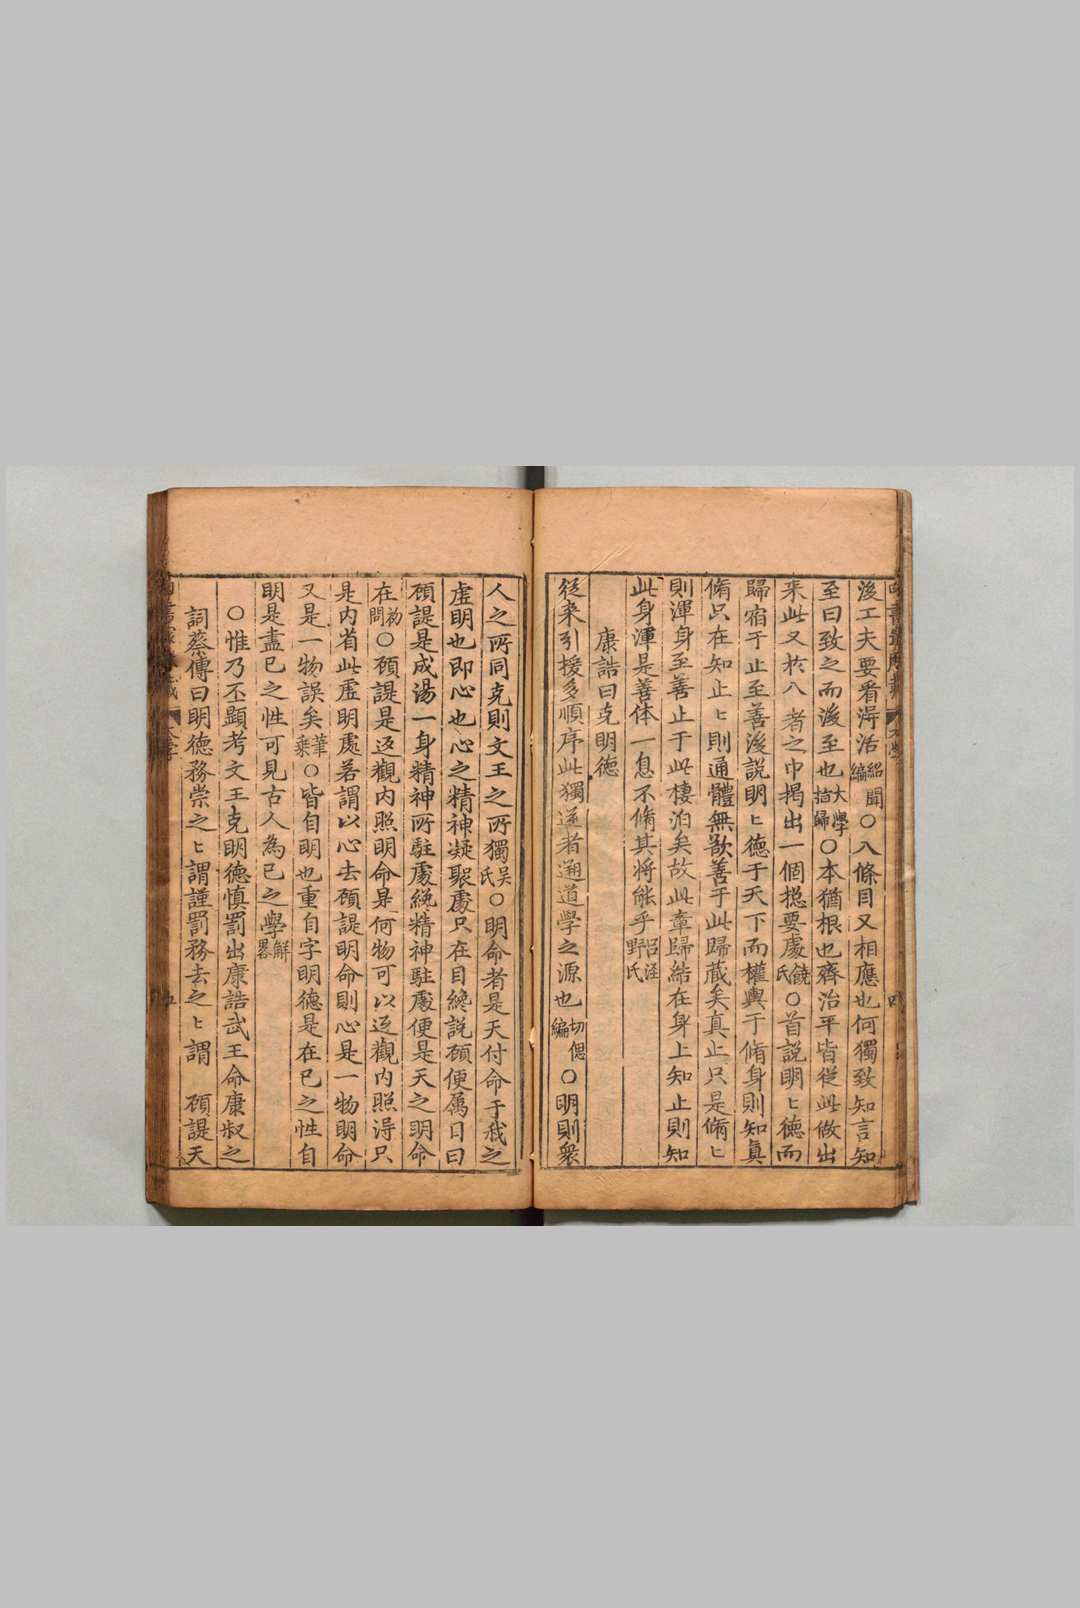 後工夫要看淂活紹聞編○八條目又相應也何獨致知言知
至曰致之而後至也大學指歸○本猶根也齊治平皆從此做出
来此又於八者之中揭出一個揔要處饒氏○首説明〻德而
歸宿于止至善後説明〻德于天下而權輿于脩身則知真
脩只在知止〻則通體無歉善于此歸藏矣真止只是脩〻
則渾身至善止于此棲泊矣故此章歸結在身上知止則知
此身渾是善体一息不脩其將能乎呂涇野氏
康誥曰克明德
從来引援多順序此獨逆者遡道學之源也切偲編○明則衆
人之所同克則文王之所獨吴氏○明命者是天付命于我之
虚明也即心也心之精神凝聚處只在目纔説顧便属目曰
顧諟是成湯一身精神所駐處纔精神駐處便是天之明命
在初問○顧諟是返觀内照明命是何物可以返觀内照淂只
是内省此虚明處若謂以心去顧諟明命則心是一物明命
又是一物誤矣○皆自明也重自字明德是在已之性自
明是盡已之性可見古人為已之學解畧
○惟乃丕顯考文王克明德慎罰出康誥武王命康叔之
詞蔡傳曰明德務崇之〻謂謹罰務去之〻謂　顧諟天